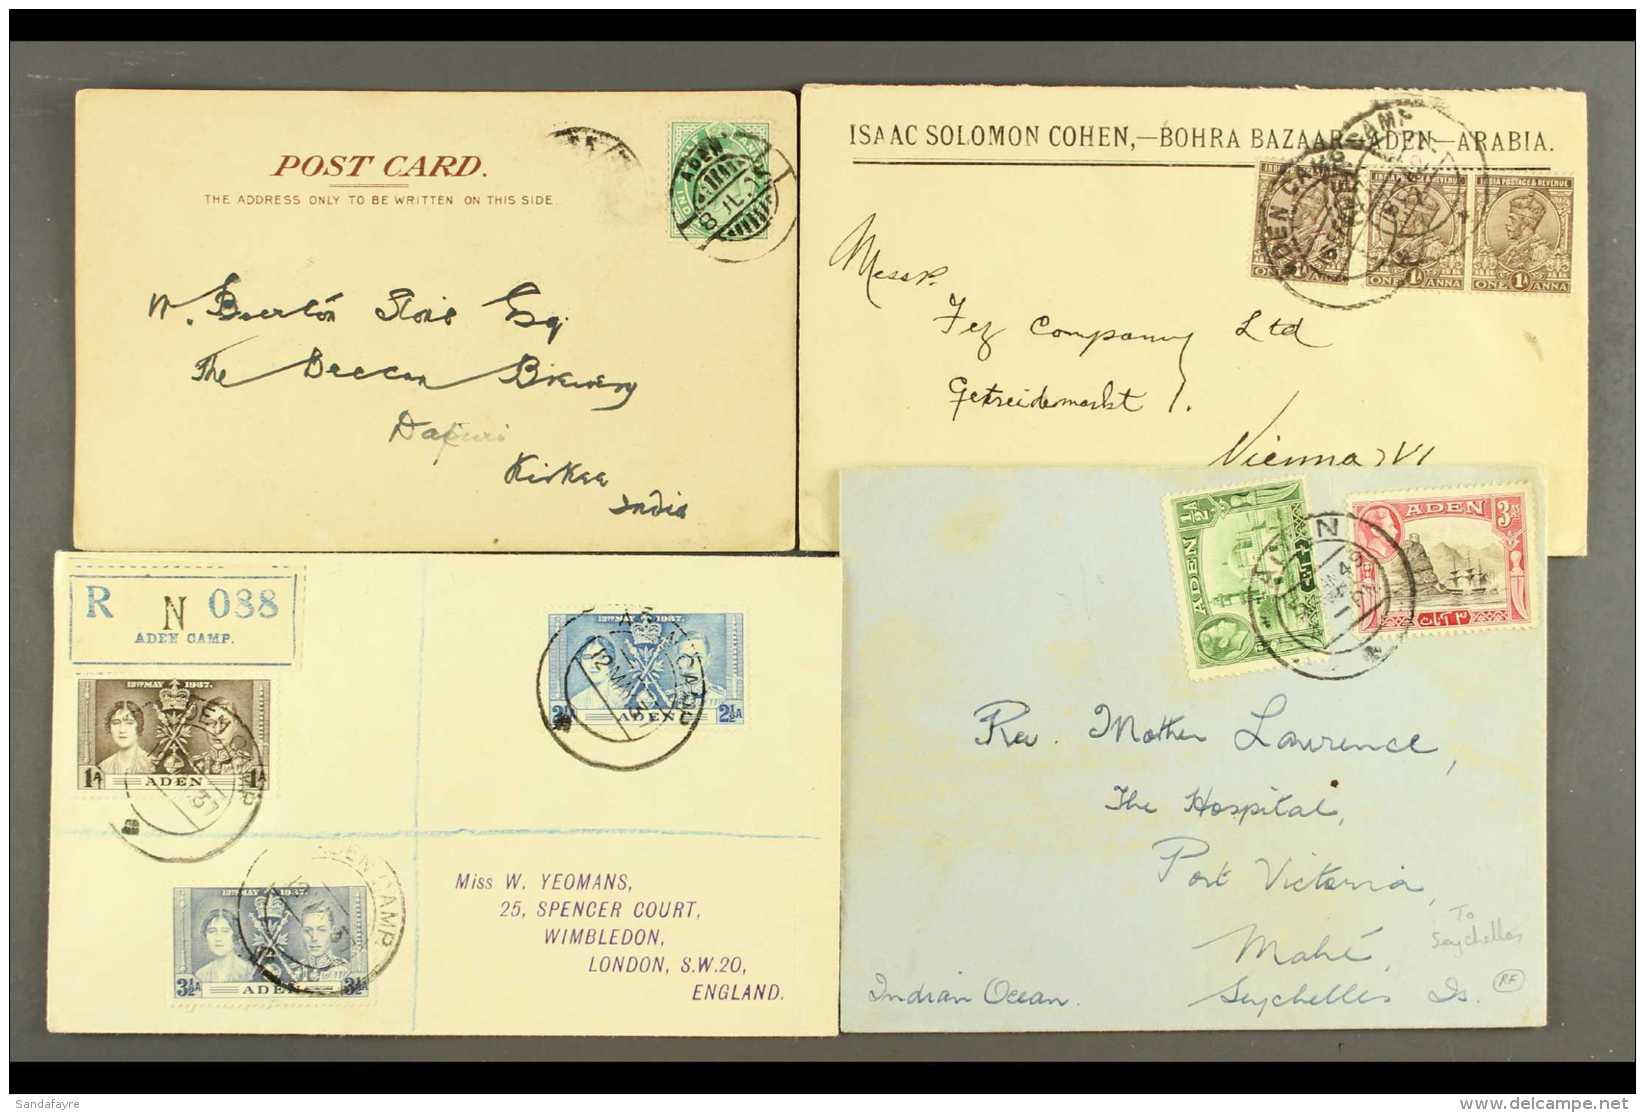 POST CARD.
THE ADDRESS ONLY TO BE WRITTEN ON THIS SIDE.
ADEN
8 JL
W.
Stone Esq.
The Deccan Brewery
Dapuri
Kirkee
India
ISAAC SOLOMON COHEN,—BOHRA BAZAAR—ADEN—ARABIA.
INDIA POSTAGE & REVENUE
ONE 1A ANNA
ONE 1A ANNA
ADEN CAMP
Messrs.
Fez Company Ltd
Getreidemarkt 1.
Vienna VI
R N 088
ADEN CAMP.
12TH MAY 1937.
1A ADEN 1A
ADEN CAMP
12TH MAY 1937.
2½A ADEN 2½A
12 MAY 37
12TH MAY 1937.
3½A ADEN
ADEN CAMP
Miss W. YEOMANS,
25, SPENCER COURT,
WIMBLEDON,
LONDON, S.W.20,
ENGLAND.
½A ADEN
ADEN 3AS
ADEN
49
Rev. Mother Lawrence,
The Hospital,
Port Victoria,
Mahé,
Seychelles Is.
Indian Ocean.
To
Seychelles
RF
Sandafayre
delcampe.net